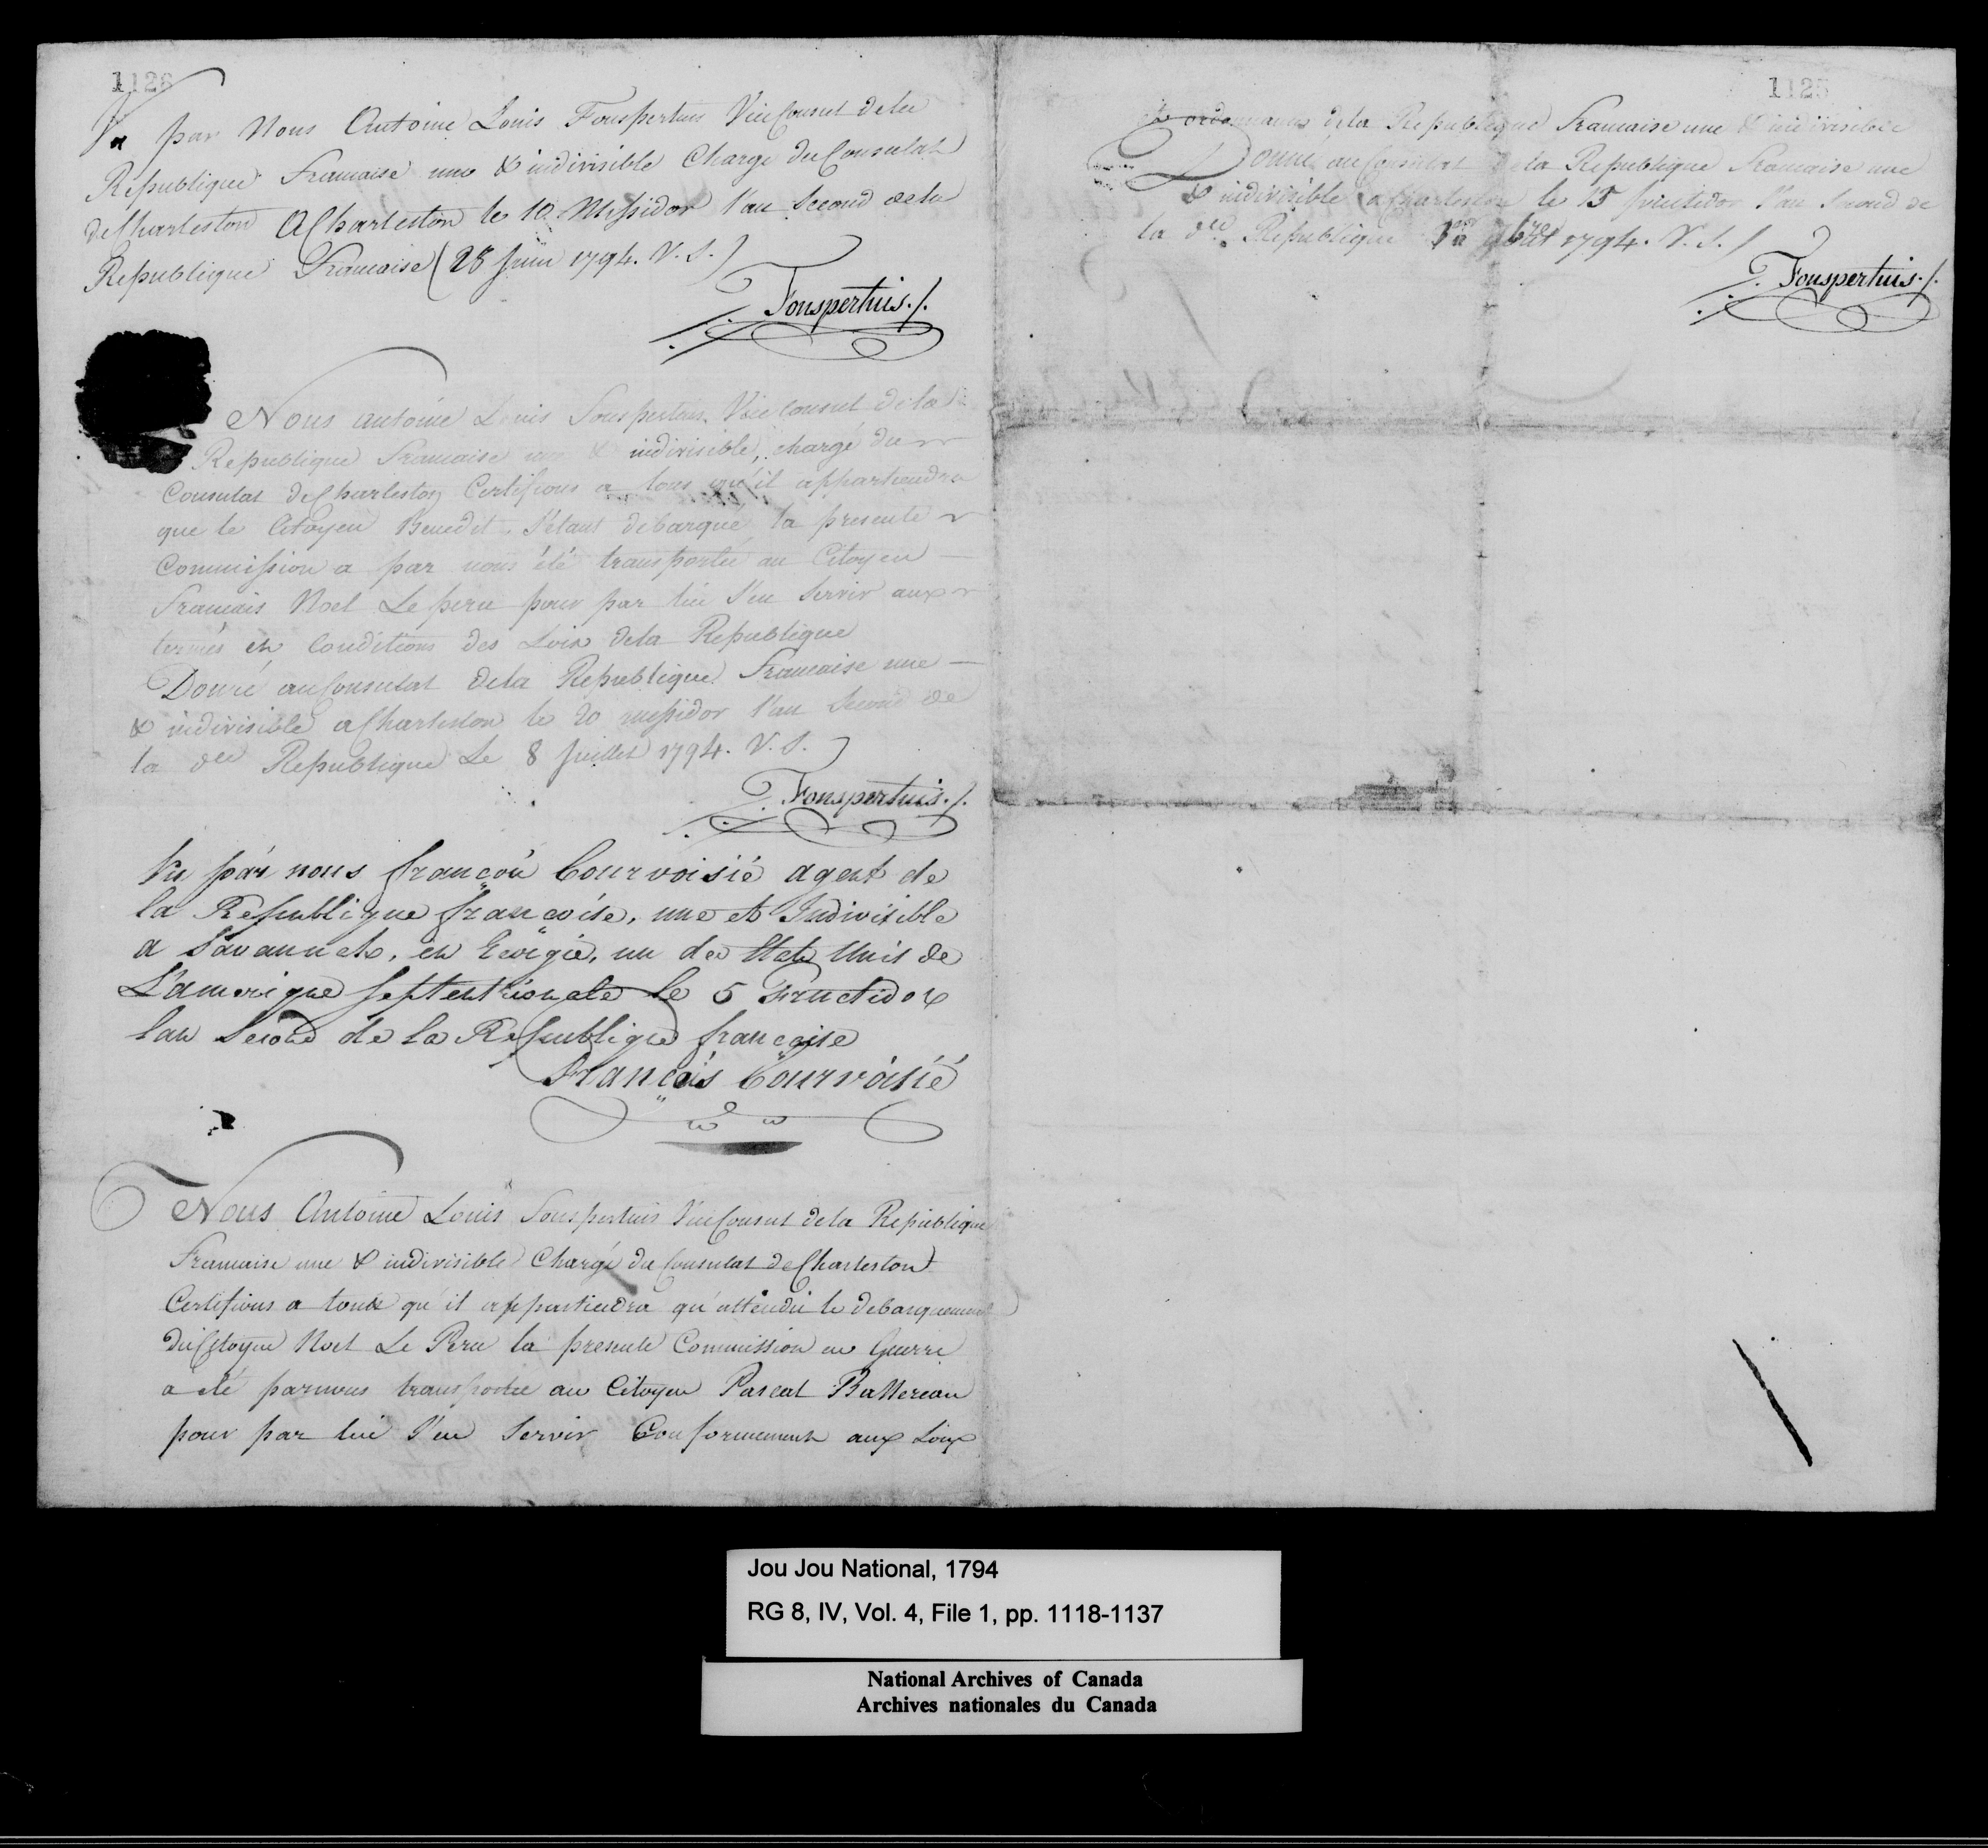 1126
Vu par Nous Antoine Louis Fonspertuis Vice Consul de la
Republique Francaise une & indivisible Chargé du Consulat
de Charleston A Charleston le 10 Messidor l'an Second de la
Republique Francaise (28 Juin 1794. V. S.)
Fonspertuis./.
Nous Antoine Louis Fonspertuis Vice Consul de la
Republique Francaise une & indivisible, chargé du
Consulat de Charleston Certifions a tous qu'il appartiendra
que le Citoyen Benedet s'étant debarqué la presente
Commission a par nous été transportée au Citoyen
Francais Noel Le peru pour par lui s'en servir aux
termes et Conditions des Loix de la Republique
Donné au Consulat de la Republique Francaise une
& indivisible a Charleston le 20 messidor l'an Second de
la dte Republique Le 8 Juillet 1794. V. S.
Fonspertuis./.
Vu par nous françois Courvoisié agent de
la Republique françoise, une et Indivisible
a Savannah, en Georgie, un des Etats Unis de
L'amerique septentrionale le 5 Fructidor
lan Second de la Republique française
François Courvoisié
Nous Antoine Louis Fonspertuis Vice Consul de la Republique
Francaise une & indivisible Chargé du Consulat de Charleston
Certifions a tous qu'il appartiendra qu'attendu le debarquement
du Citoyen Noel Le Peru la presente Commission en Guerre
a été par nous transportée au Citoyen Pascal Battereau
pour par lui s'en servir Conformement aux Loix
1125
& ordonnances de la Republique Francaise une & indivisible
Donné au Consulat de la Republique Francaise une
& indivisible a Charleston le 15 fructidor l'an Second de
la dte Republique 1794. V. S.)
Fonspertuis./.
Jou Jou National, 1794
RG 8, IV, Vol. 4, File 1, pp. 1118-1137
National Archives of Canada
Archives nationales du Canada